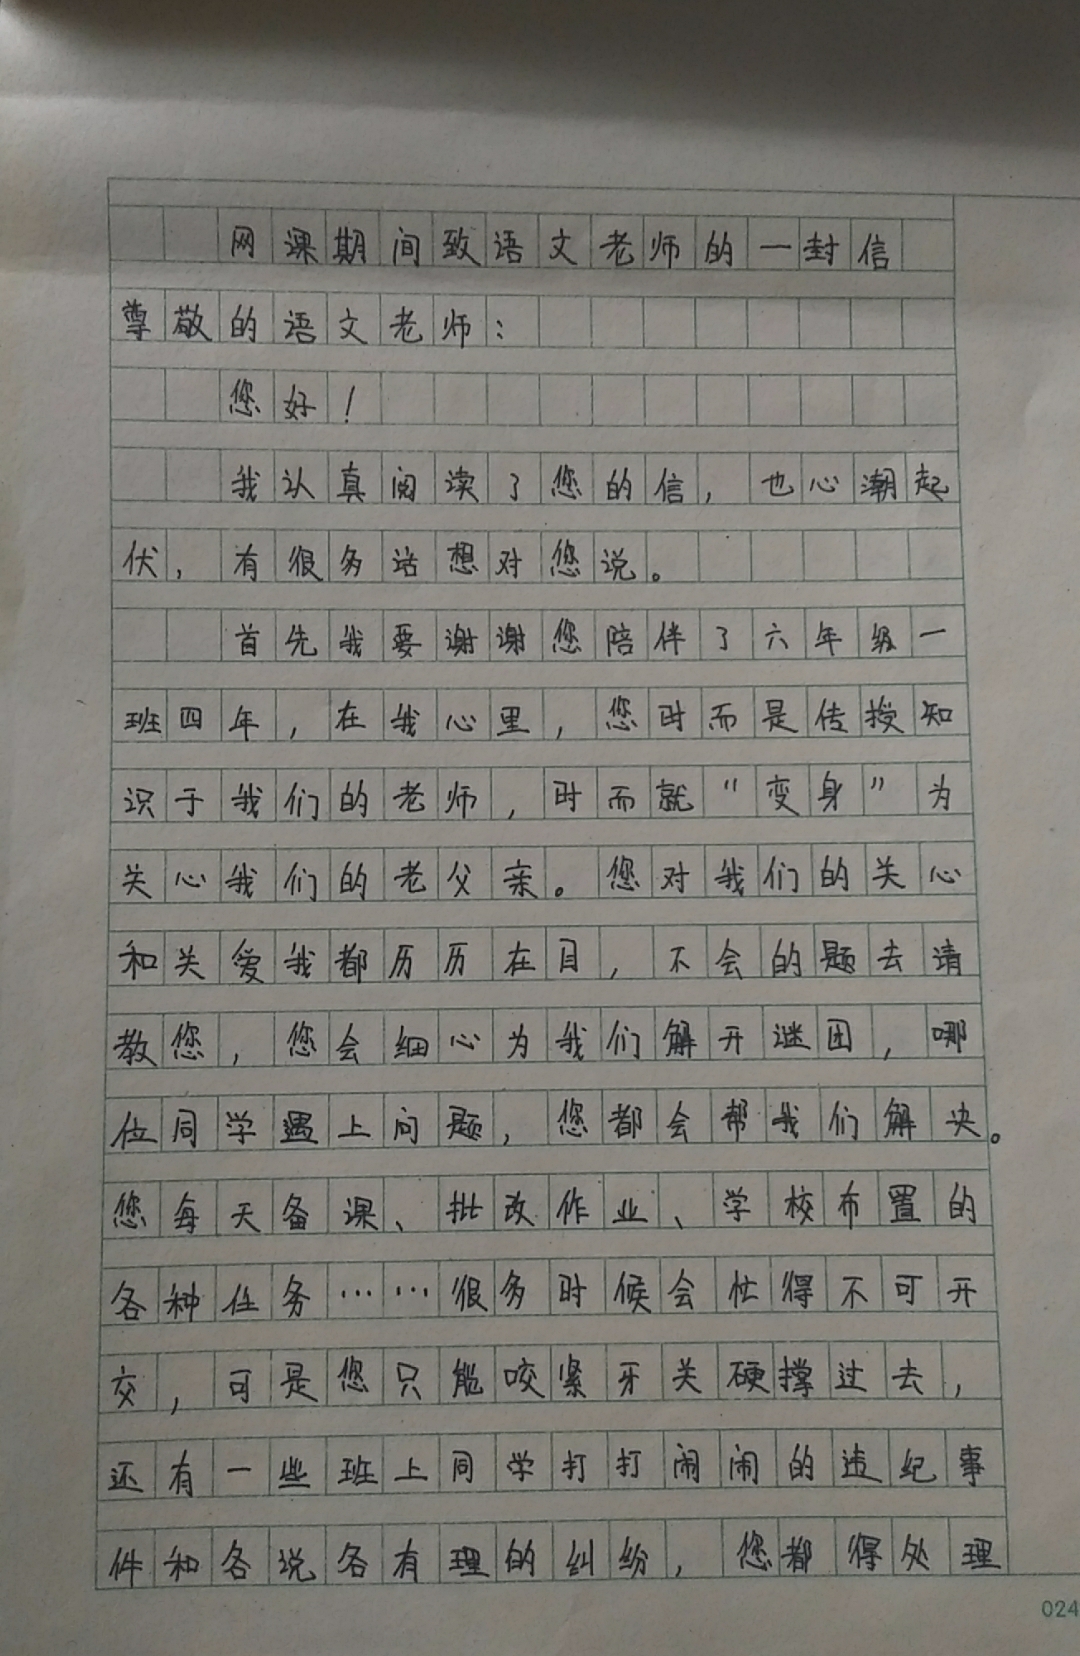 网课期间致语文老师的一封信
尊敬的语文老师：
您好！
我认真阅读了您的信，也心潮起
伏，有很多话想对您说。
首先我要谢谢您陪伴了六年级一
班四年，在我心里，您时而是传授知
识于我们的老师，时而就“变身”为
关心我们的老父亲。您对我们的关心
和关爱我都历历在目，不会的题去请
教您，您会细心为我们解开谜团，哪
位同学遇上问题，您都会帮我们解决。
您每天备课、批改作业、学校布置的
各种任务……很多时候会忙得不可开
交，可是您只能咬紧牙关硬撑过去，
还有一些班上同学打打闹闹的违纪事
件和各说各有理的纠纷，您都得处理
024